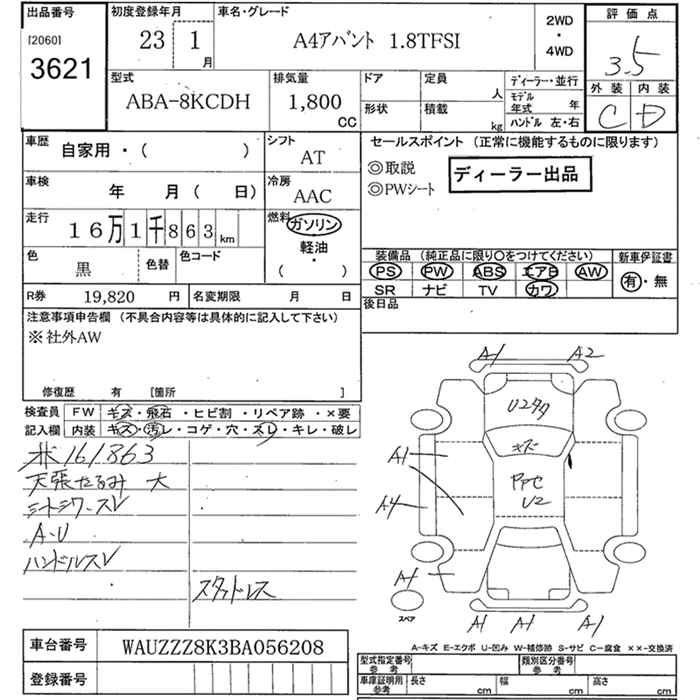 出品番号
[2060]
3621
初度登録年月
23 1 月
車名・グレード
A4アバント 1.8TFSI
2WD
・
4WD
評価点
3.5
外装 内装
C D
型式
ABA-8KCDH
排気量
1,800
CC
ドア
形状
定員
人
積載
kg
ディーラー・並行
モデル
年式 年
ハンドル 左・右
車歴
自家用・( )
シフト
AT
車検
年 月 ( 日)
冷房
AAC
走行
16万1千863km
燃料
ガソリン
軽油
・
( )
色
黒
色替
色コード
R券 19,820 円
名変期限 月 日
セールスポイント (正常に機能するものに限ります)
◎取説
◎PWシート
ディーラー出品
装備品 (純正品に限り○をつけてください)
PS PW ABS エアB AW
SR ナビ TV カワ
新車保証書
有・無
後日品
注意事項申告欄 (不具合内容等は具体的に記入して下さい)
※社外AW
修復歴 有 [箇所 ]
検査員
記入欄
FW キズ・飛石・ヒビ割・リペア跡・×要
内装 キズ・汚レ・コゲ・穴・スレ・キレ・破レ
161863
天張たるみ 大
シートシワ・スレ
A・U
ハンドルスレ
スタッドレス
A1
A2
U2タタ
キズ
A1
A4
U2
A1
スペア
A1
A1
A1
A-キズ E-エクボ U-凹み W-補修跡 S-サビ C-腐食 ××-交換済
車台番号 WAUZZZ8K3BA056208
登録番号
型式指定番号
参考
類別区分番号
参考
車庫証明用
参考
長さ cm
幅 cm
高さ cm